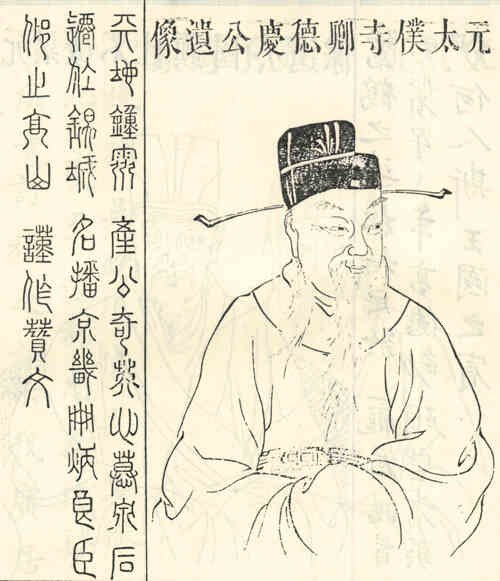 元太僕寺卿德慶公遺像
天地鍾靈產公奇英心慕泉石
遷於錦城名播京畿冊炳良臣
仰止高山謹作贊文